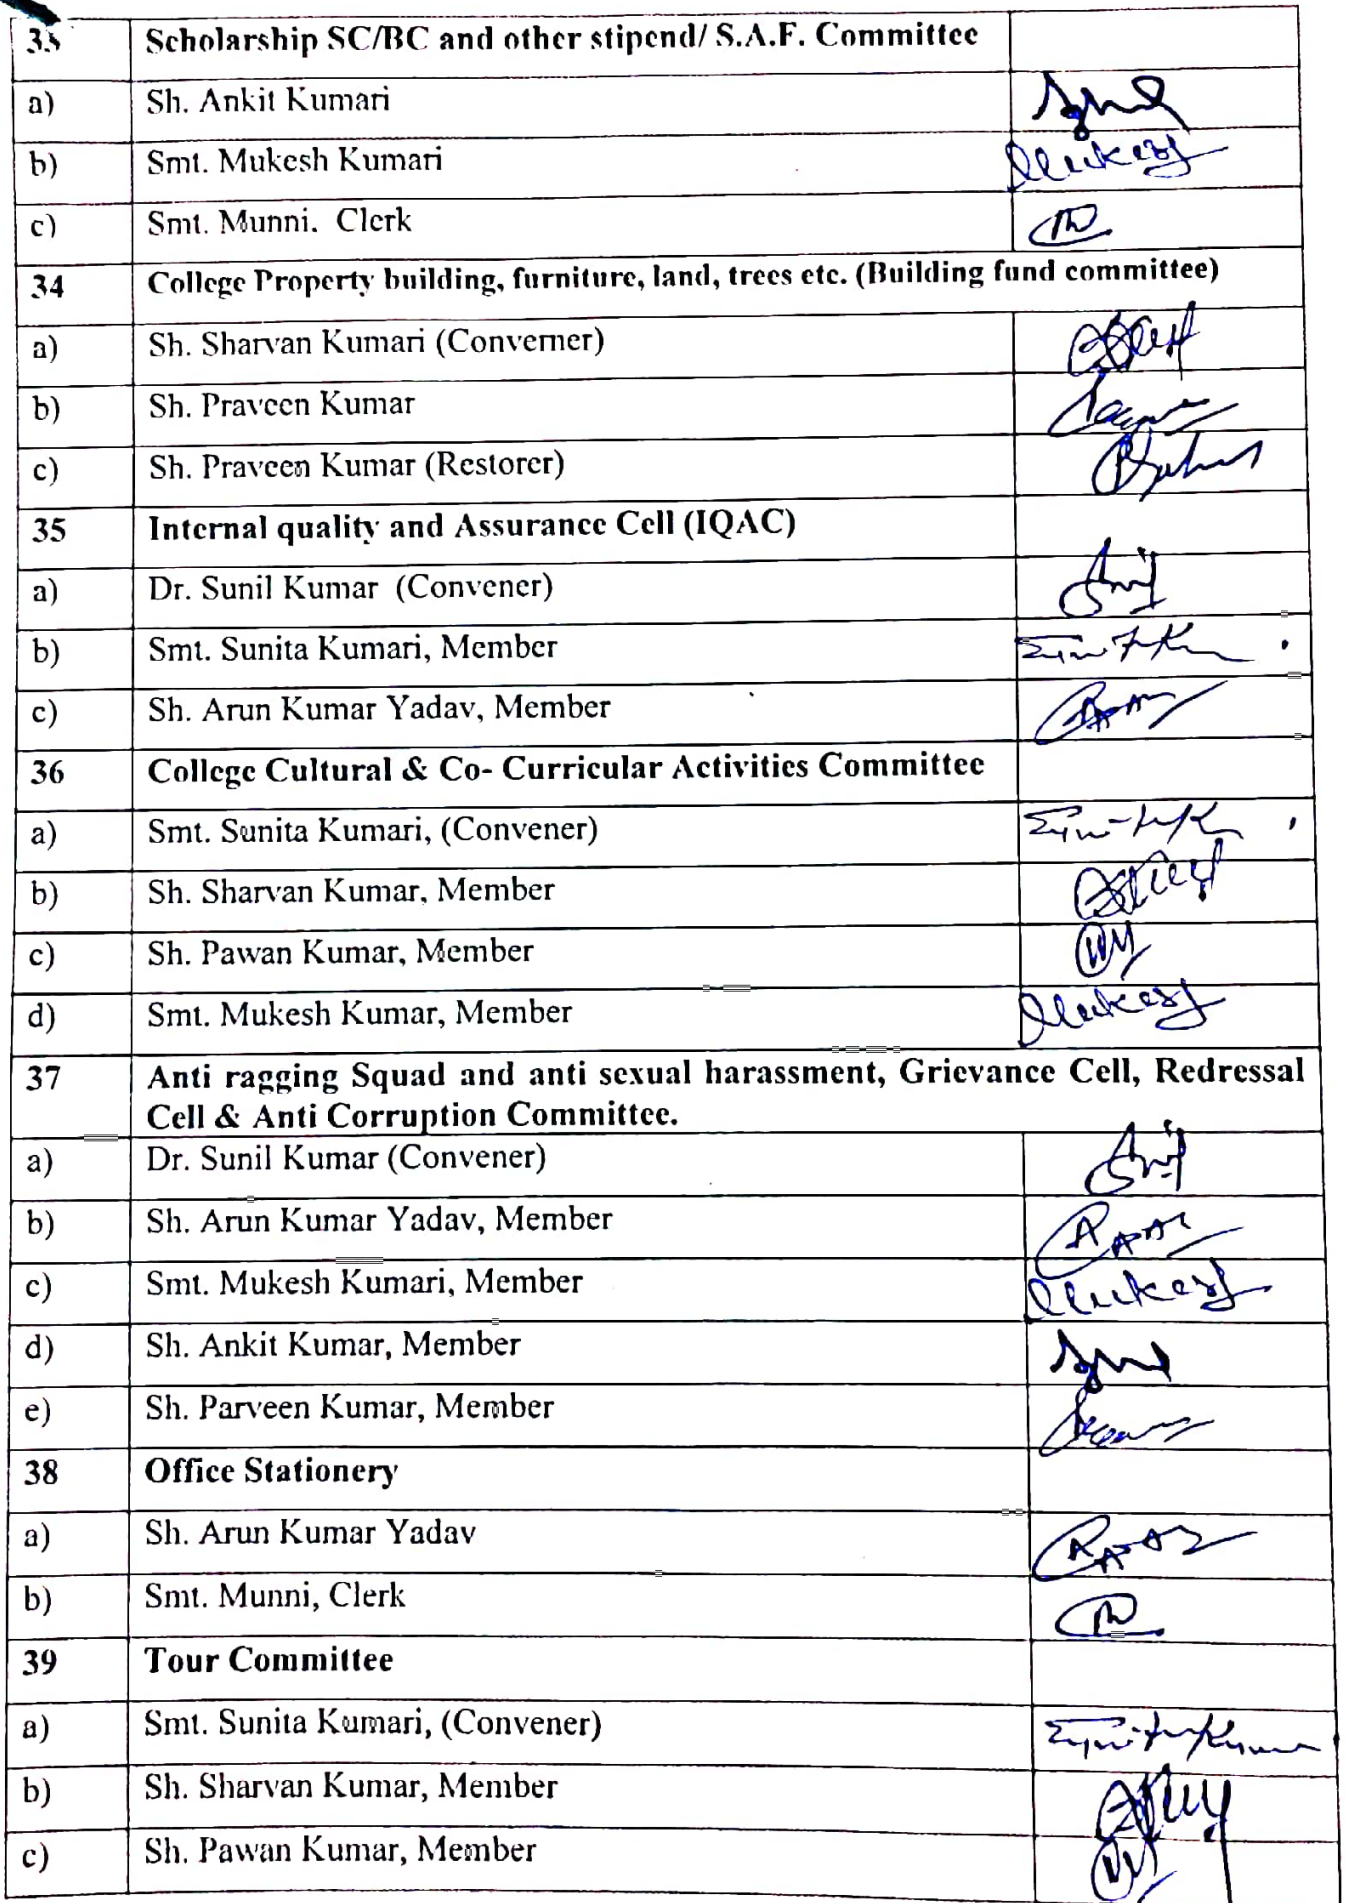 Scholarship SC/BC and other stipend/ S.A.F. Committee
a) Sh. Ankit Kumari
b) Smt. Mukesh Kumari Mukesh
c) Smt. Munni. Clerk
34 College Property building, furniture, land, trees etc. (Building fund committee)
a) Sh. Sharvan Kumari (Converner)
b) Sh. Praveen Kumar
c) Sh. Praveen Kumar (Restorer)
35 Internal quality and Assurance Cell (IQAC)
a) Dr. Sunil Kumar (Convener)
b) Smt. Sunita Kumari, Member
c) Sh. Arun Kumar Yadav, Member
36 College Cultural & Co- Curricular Activities Committee
a) Smt. Sunita Kumari, (Convener)
b) Sh. Sharvan Kumar, Member
c) Sh. Pawan Kumar, Member
d) Smt. Mukesh Kumar, Member Mukesh
37 Anti ragging Squad and anti sexual harassment, Grievance Cell, Redressal
Cell & Anti Corruption Committee.
a) Dr. Sunil Kumar (Convener)
b) Sh. Arun Kumar Yadav, Member
c) Smt. Mukesh Kumari, Member Mukesh
d) Sh. Ankit Kumar, Member
e) Sh. Parveen Kumar, Member
38 Office Stationery
a) Sh. Arun Kumar Yadav
b) Smt. Munni, Clerk
39 Tour Committee
a) Smt. Sunita Kumari, (Convener)
b) Sh. Sharvan Kumar, Member
c) Sh. Pawan Kumar, Member